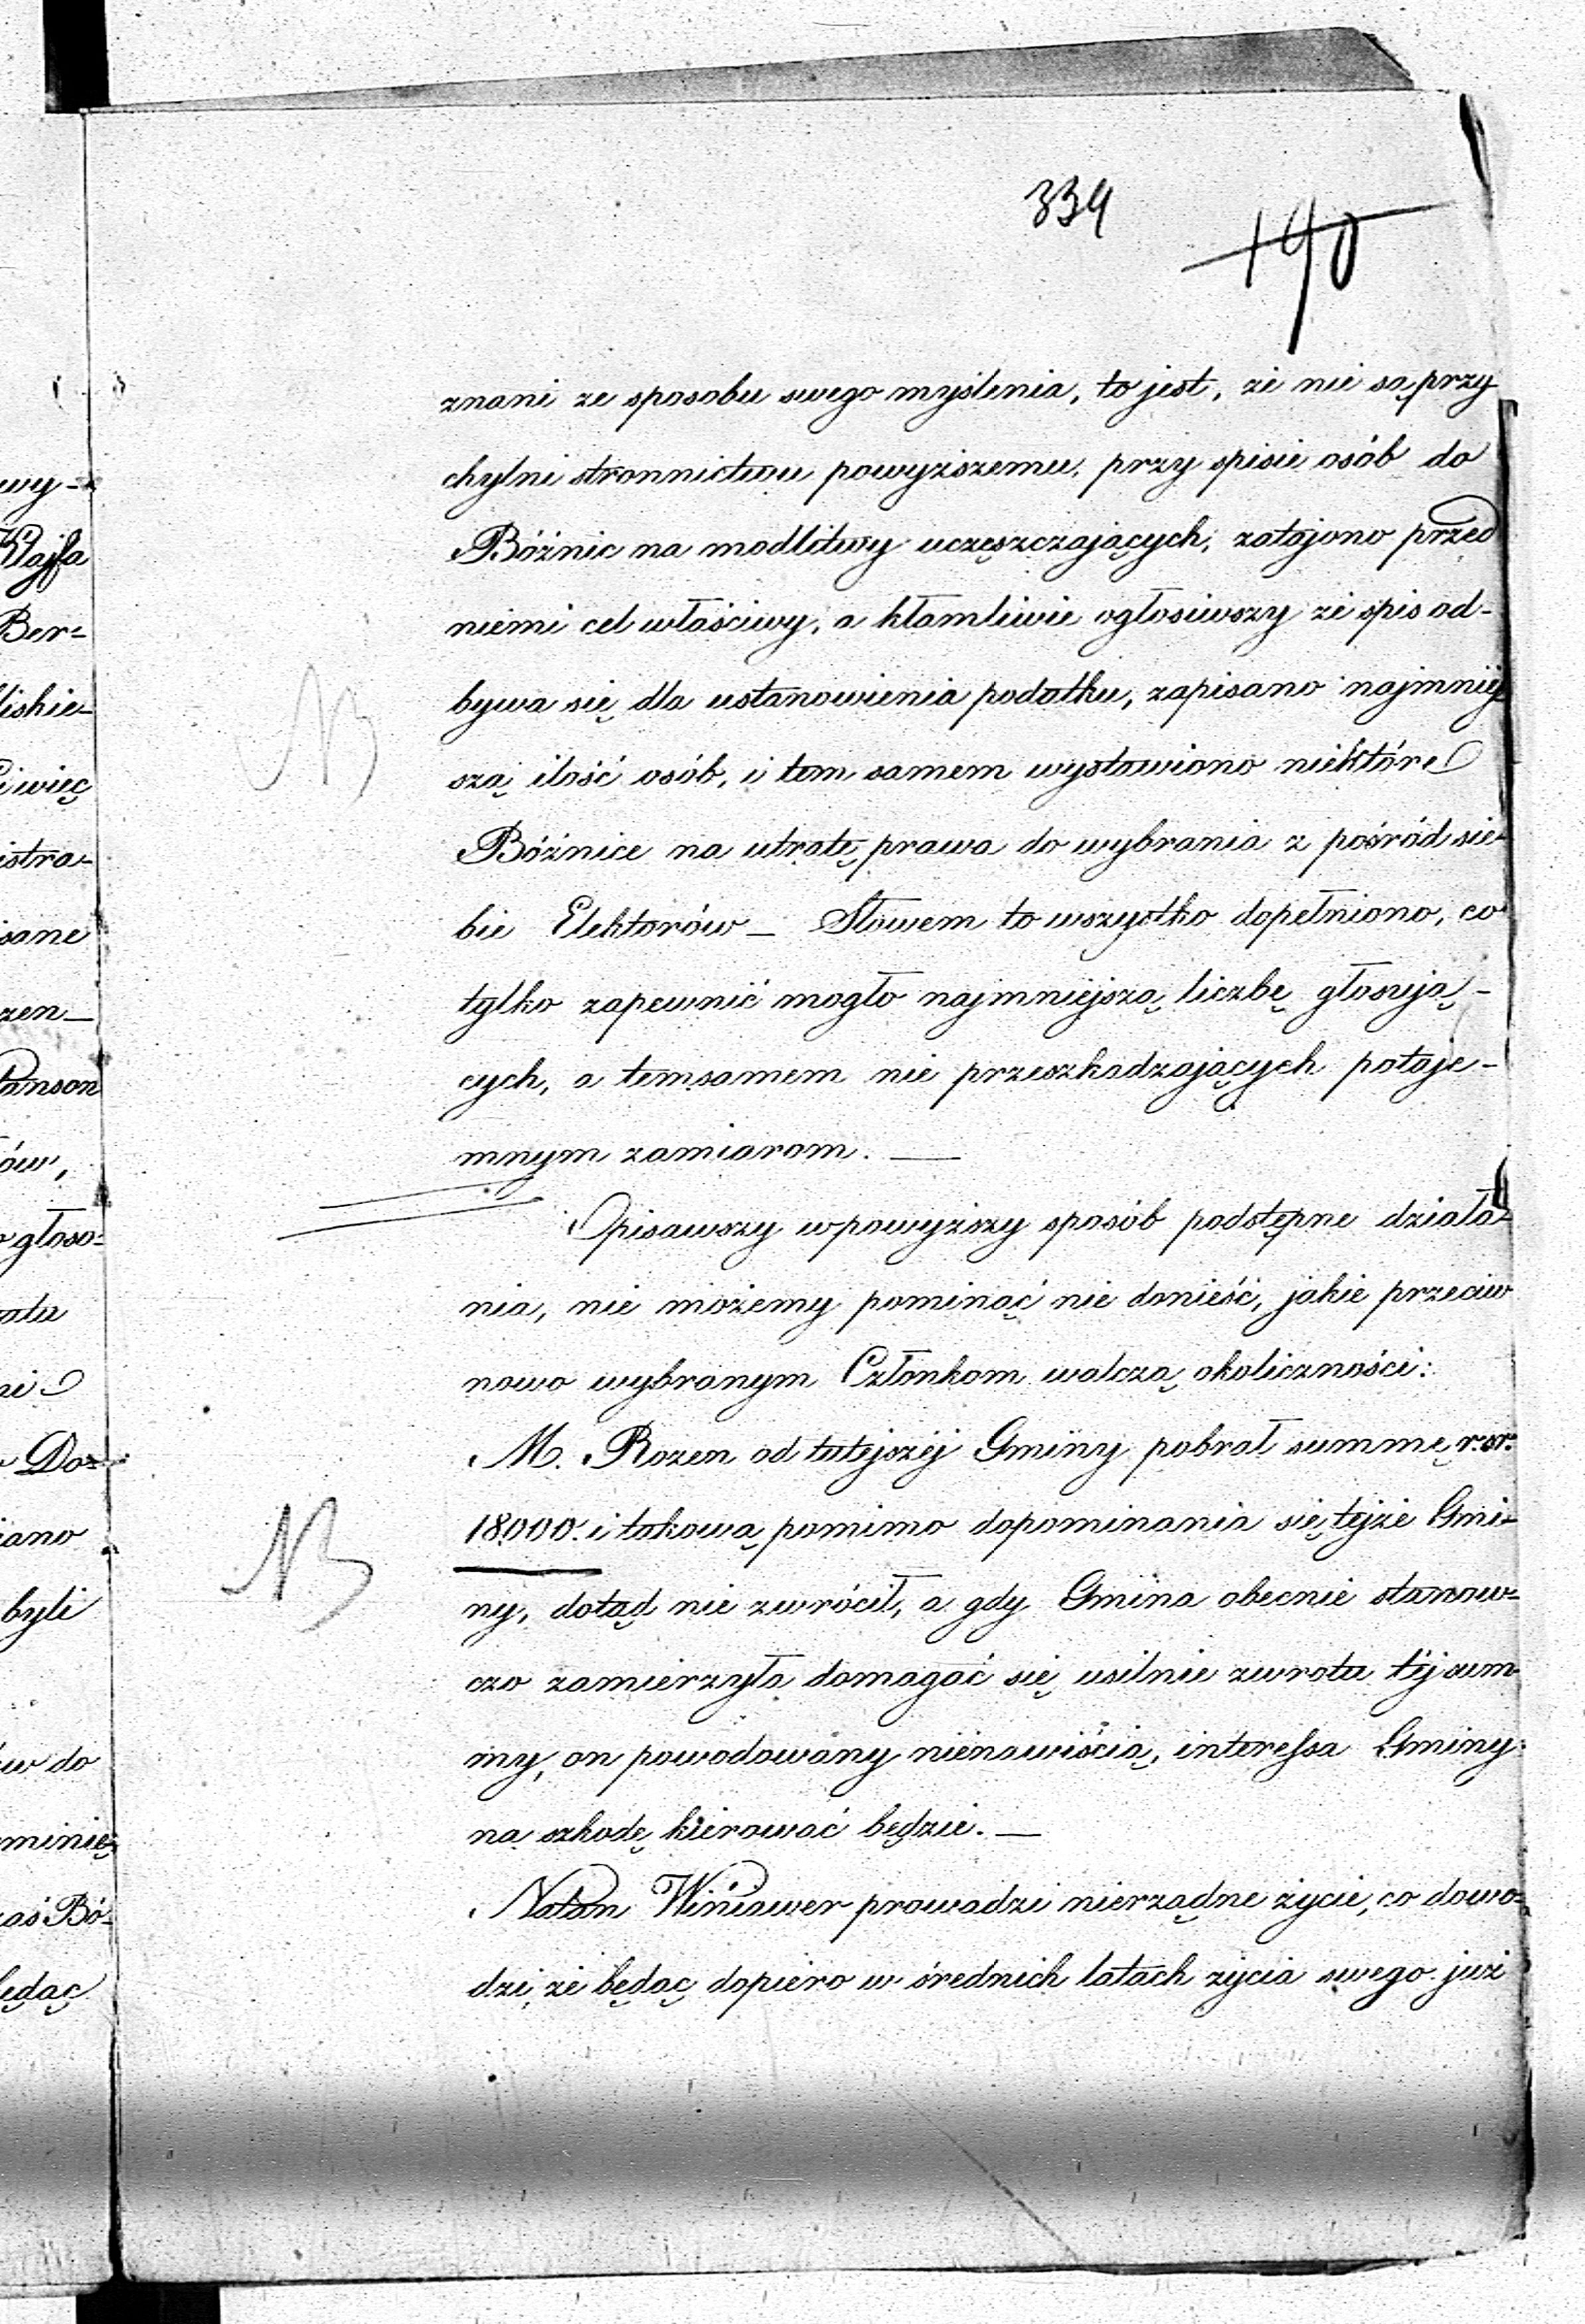 334
190
znani ze sposobu swego myślenia, to jest, że nie są przy
chylni stronnictwu powyższemu, przy spisie osób do
Bóżnic na modlitwy uczęszczających, zatajono przed
niemi cel właściwy, a kłamliwie ogłosiwszy że spis od-
bywa się dla ustanowienia podatku, zapisano najmniej
szą ilość osób, i tem samem wystawiono niektóre
Bóżnice na utratę prawa do wybrania z pośród sie-
bie Elektorów _ Słowem to wszystko dopełniono, co
tylko zapewnić mogło najmniejszą liczbę głosują-
cych, a temsamem nie przeszkadzających potaje-
mnym zamiarom. _
Opisawszy w powyższy sposób podstępne działa-
nia, nie możemy pominąć nie donieść, jakie przeciw
nowo wybranym Członkom walczą okoliczności:
NB
M. Rozen od tutejszéj Gminy pobrał summę r.sr.
18000. i takową pomimo dopominania się tejże Gmi-
ny, dotąd nie zwrócił, a gdy Gmina obecnie stanow-
czo zamierzyła domagać się usilnie zwrotu téj sum-
my, on powodowany nienawiścią, interessa Gminy
na szkodę kierować będzie. _
NB
Natan Winiawer prowadzi nierządne życie, co dowo-
dzi, że będąc dopiero w średnich latach życia swego już
wy-
Ber-
liskie-
i więc
istra-
sane
zen_
ów,
głoso-
Do-
iano
byli
w do
minię
aś Bó-
będąc